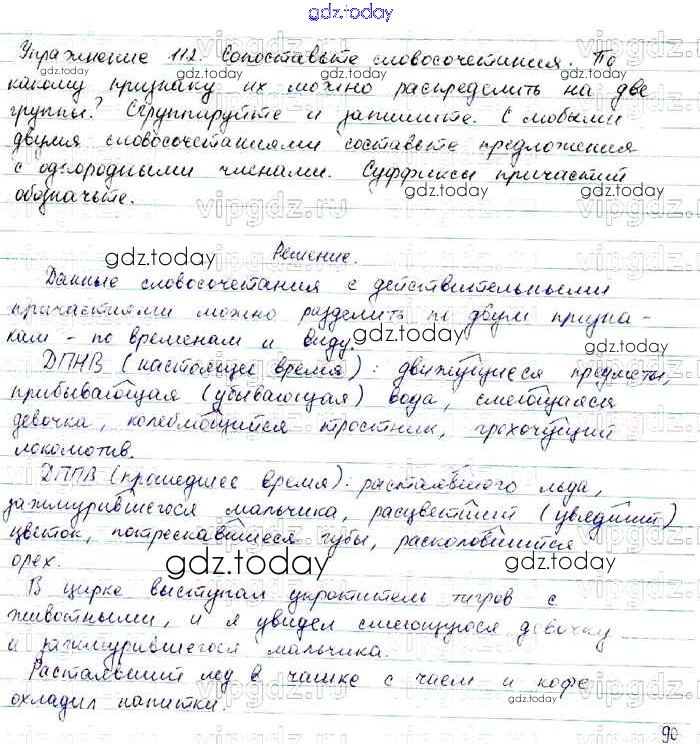 gdz.today
Упражнение 112. Сопоставьте словосочетания. По
какому признаку их можно распределить на две
группы? Сгруппируйте и запишите. С любыми
двумя словосочетаниями составьте предложения
с однородными членами. Суффиксы причастий
обозначьте.
Решение.
Данные словосочетания с действительными
причастиями можно разделить по двум призна-
кам - по временам и виду.
ДПНВ (настоящее время): движущиеся предметы,
прибывающая (убывающая) вода, смеющаяся
девочка, колеблющийся тростник, грохочущий
локомотив.
ДППВ (прошедшее время): растаявшего льда,
зажмурившегося мальчика, расцветший (увядший)
цветок, потрескавшиеся губы, расколовшийся
орех.
В цирке выступал укротитель тигров с
животными, и я увидел смеющуюся девочку
и зажмурившегося мальчика.
Растаявший лед в чашке с чаем и кофе
охладил напитки.
90